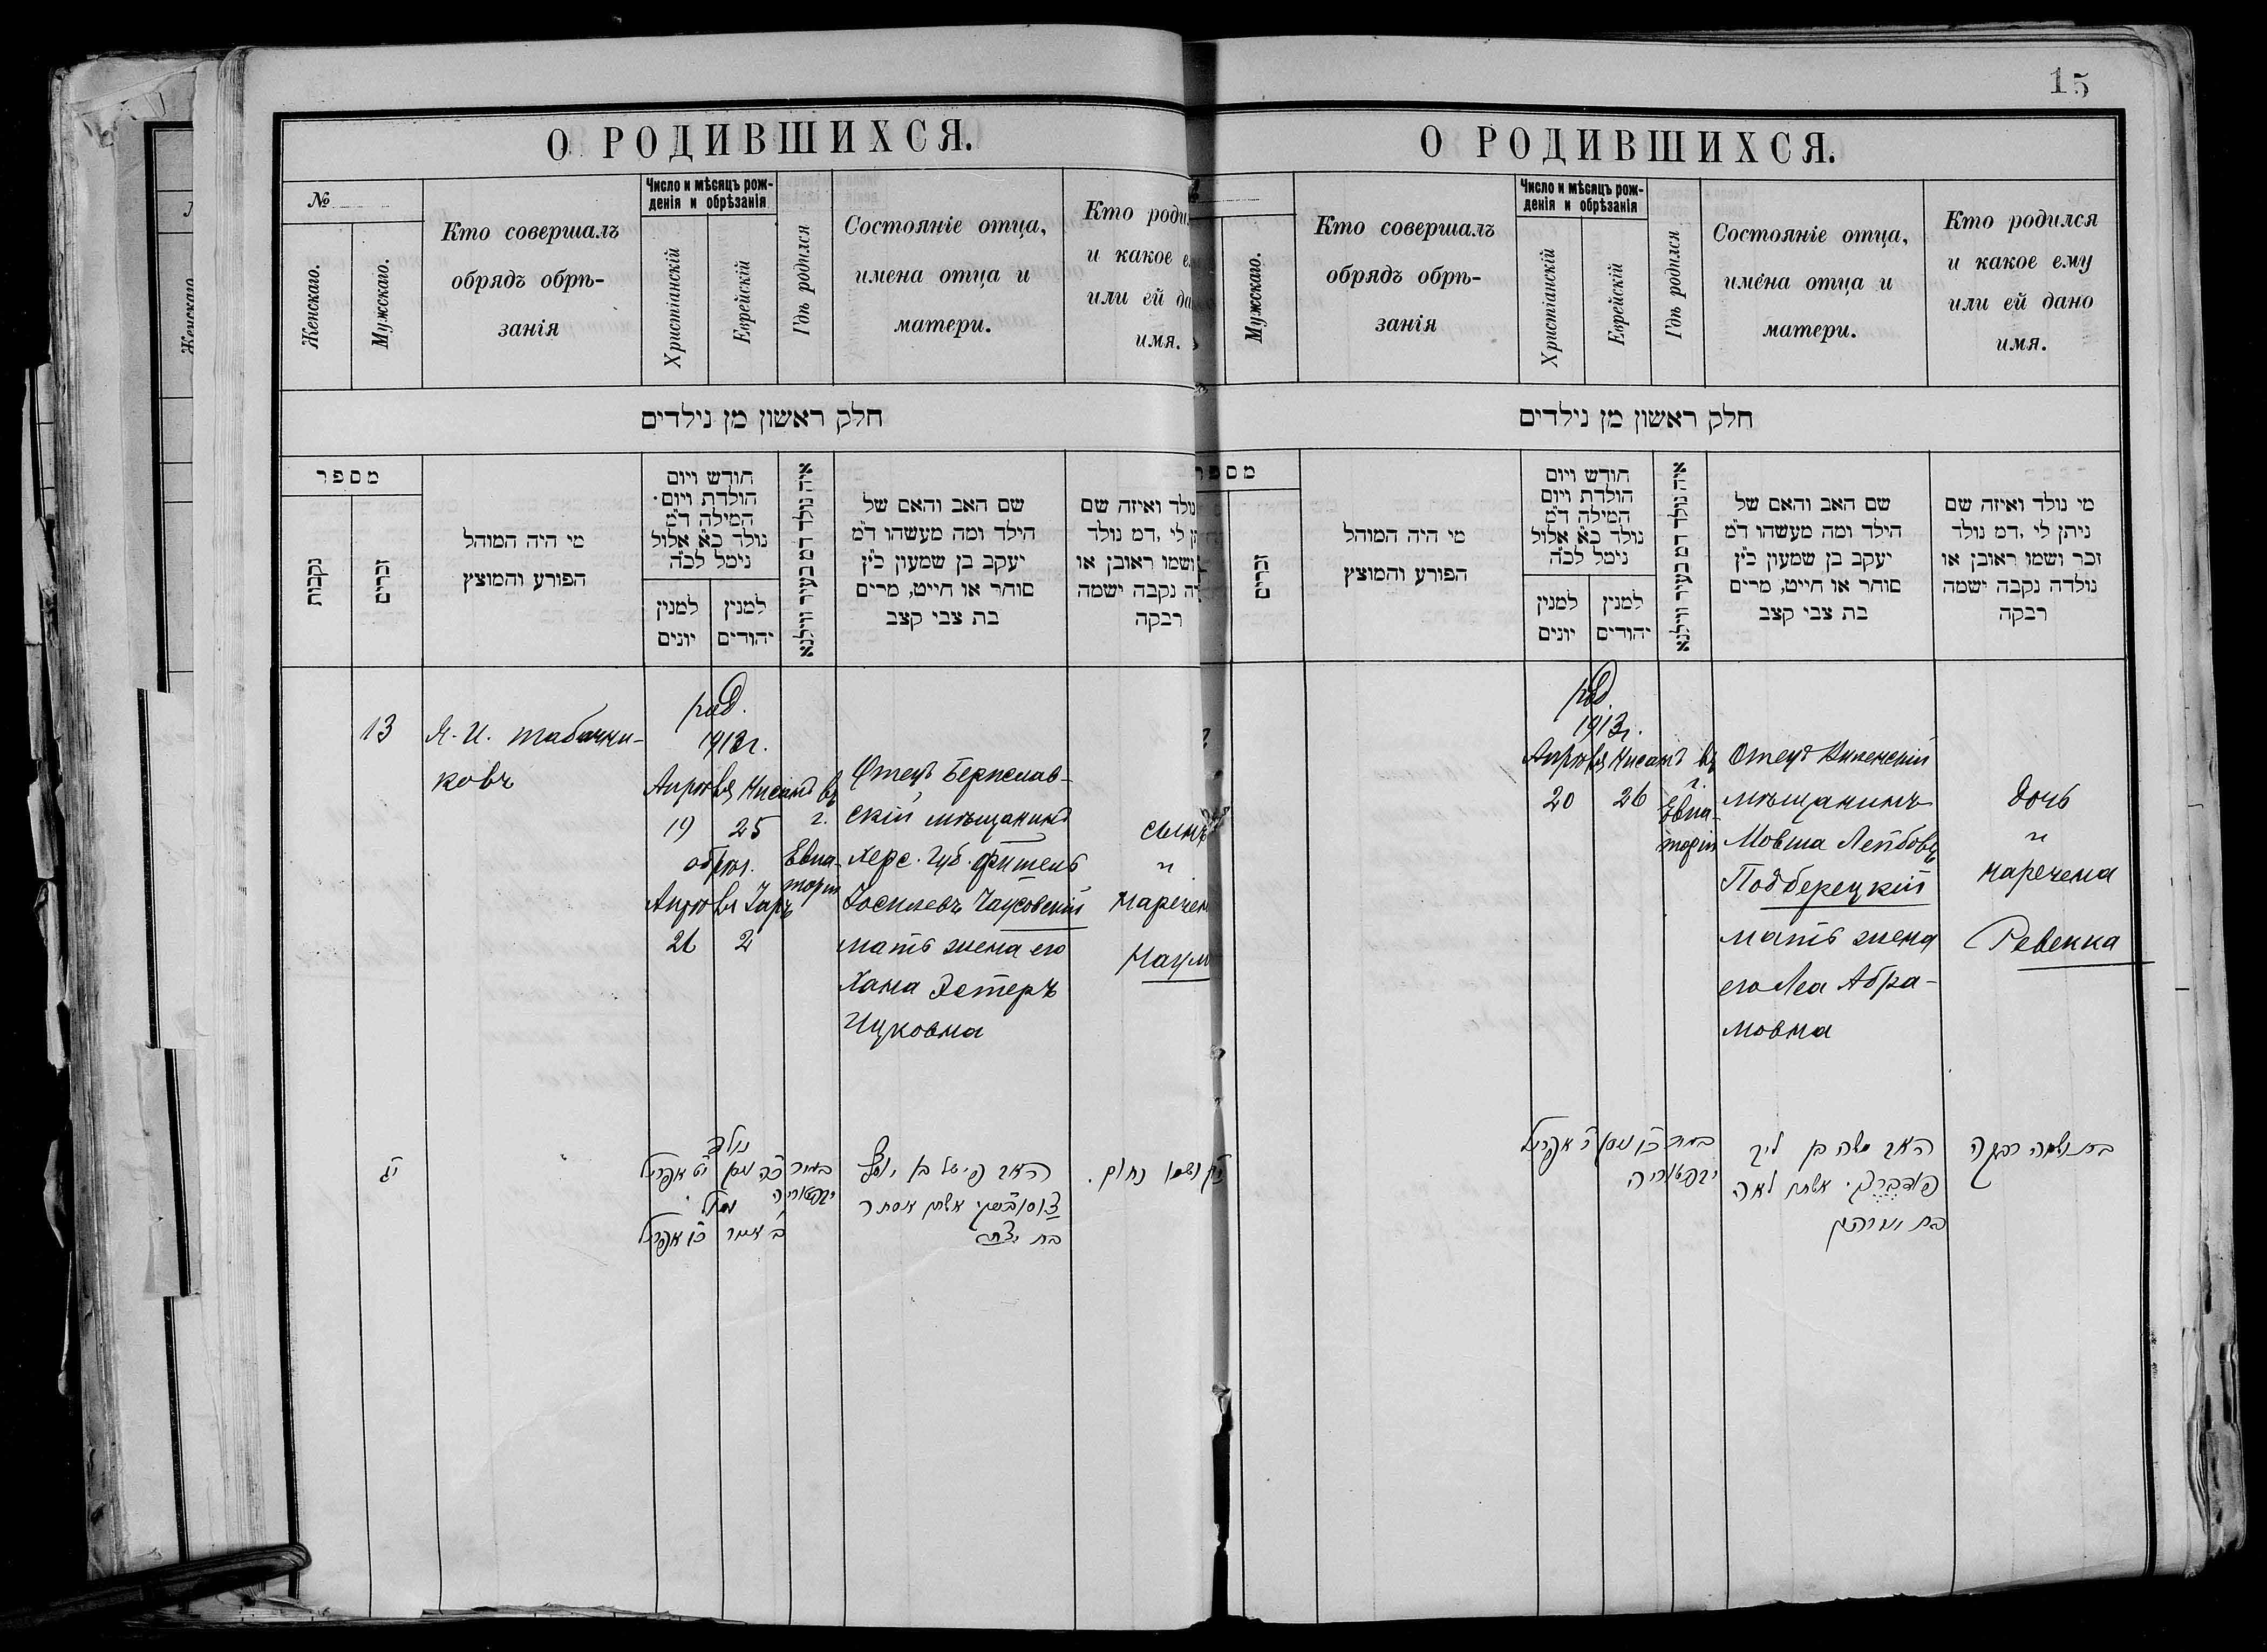 15
О РОДИВШИХСЯ.
№
Женскаго.
Мужскаго.
Кто совершалъ
обрядъ обрѣ-
занія
Число и мѣсяцъ рож-
денія и обрѣзанія
Христіанскій
Еврейскій
Гдѣ родился
Состояніе отца,
имена отца и
матери.
Кто роди
и какое е
или ей да
имя.
חלק ראשון מן נילדים
מספר
נקבות
זכרים
מי היה המוהל
הפורע והמוצץ
חודש ויום
הולדת ויום
המילה ד״מ
נולד כ״א אלול
נימל לכ״ה
למנין
יונים
למנין
יהודים
איה נולד דמ בעיר ווילנא
שם האב והאם של
הילד ומה מעשהו ד״מ
יעקב בן שמעון כ״ץ
סוחר או חייט, מרים
בת צבי קצב
נולד ואיזה שם
תן לי, דמ נולד
ושמו ראובן או
דה נקבה ישמה
רבקה
13
Я. И. Табачни-
ковъ
род.
1913 г.
Апрѣля Нисанъ
19 25
обрѣз.
Апрѣля Іаръ
26 2
въ
г.
Евпа-
торіи
Отецъ Берислав-
скій мѣщанинъ
Херс. губ. Фишель
Іосиневъ Чаусовскій
мать жена его
Хана Эстеръ
Ицковна
сынъ
и
наречен
Наум
י״ג
נולד
כ״ה ניסן י״ט אפריל
נימול
ב׳ אייר כ״ו אפריל
בעיר
יבפטוריה
האב פישל בן יוסף
אשתו אסתר
בת יצחק
ושמו נחום.
О РОДИВШИХСЯ.
Мужскаго.
Кто совершалъ
обрядъ обрѣ-
занія
Число и мѣсяцъ рож-
денія и обрѣзанія
Христіанскій
Еврейскій
Гдѣ родился
Состояніе отца,
имена отца и
матери.
Кто родился
и какое ему
или ей дано
имя.
חלק ראשון מן נילדים
מספר
זכרים
מי היה המוהל
הפורע והמוצץ
חודש ויום
הולדת ויום
המילה ד״מ
נולד כ״א אלול
נימל לכ״ה
למנין
יונים
למנין
יהודים
איה נולד דמ בעיר ווילנא
שם האב והאם של
הילד ומה מעשהו ד״מ
יעקב בן שמעון כ״ץ
סוחר או חייט, מרים
בת צבי קצב
מי נולד ואיזה שם
ניתן לי, דמ נולד
זכר ושמו ראובן או
נולדה נקבה ישמה
רבקה
род.
1913 г.
Апрѣля Нисанъ
20 26
въ
г.
Евпа-
торіи
Отецъ Виленскій
мѣщанинъ
Мовша Лейбовъ
Подберецкій
мать жена
его Леа Абра-
мовна
дочь
и
наречена
Ревекка
כ״ו ניסן כ׳ אפריל
בעיר
יבפטוריה
האב משה בן ליב
פודברצקי אשתו לאה
בת אברהם
בת ושמה רבקה